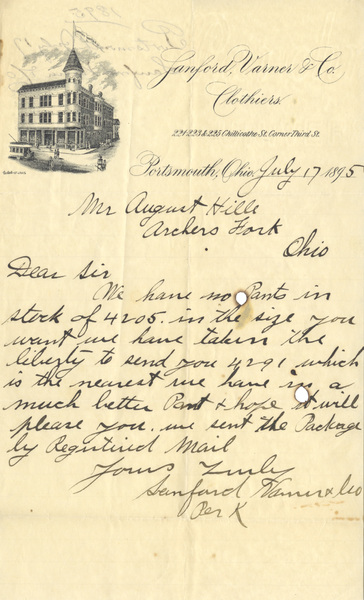 Sanford, Varner & Co.
Clothiers.
221-223 & 225 Chillicothe St. Corner Third St.
Portsmouth, Ohio, July 17 1895
Mr August Hille
Archers Fork
Ohio
Dear Sir
We have no Pants in
stock of 4205. in the size you
want we have taken the
liberty to send you 4291 which
is the nearest we have in a
much better Pant & hope it will
please you. we sent the Package
by Regestired Mail
Yours Truly
Sanford Varner & Co
Per K